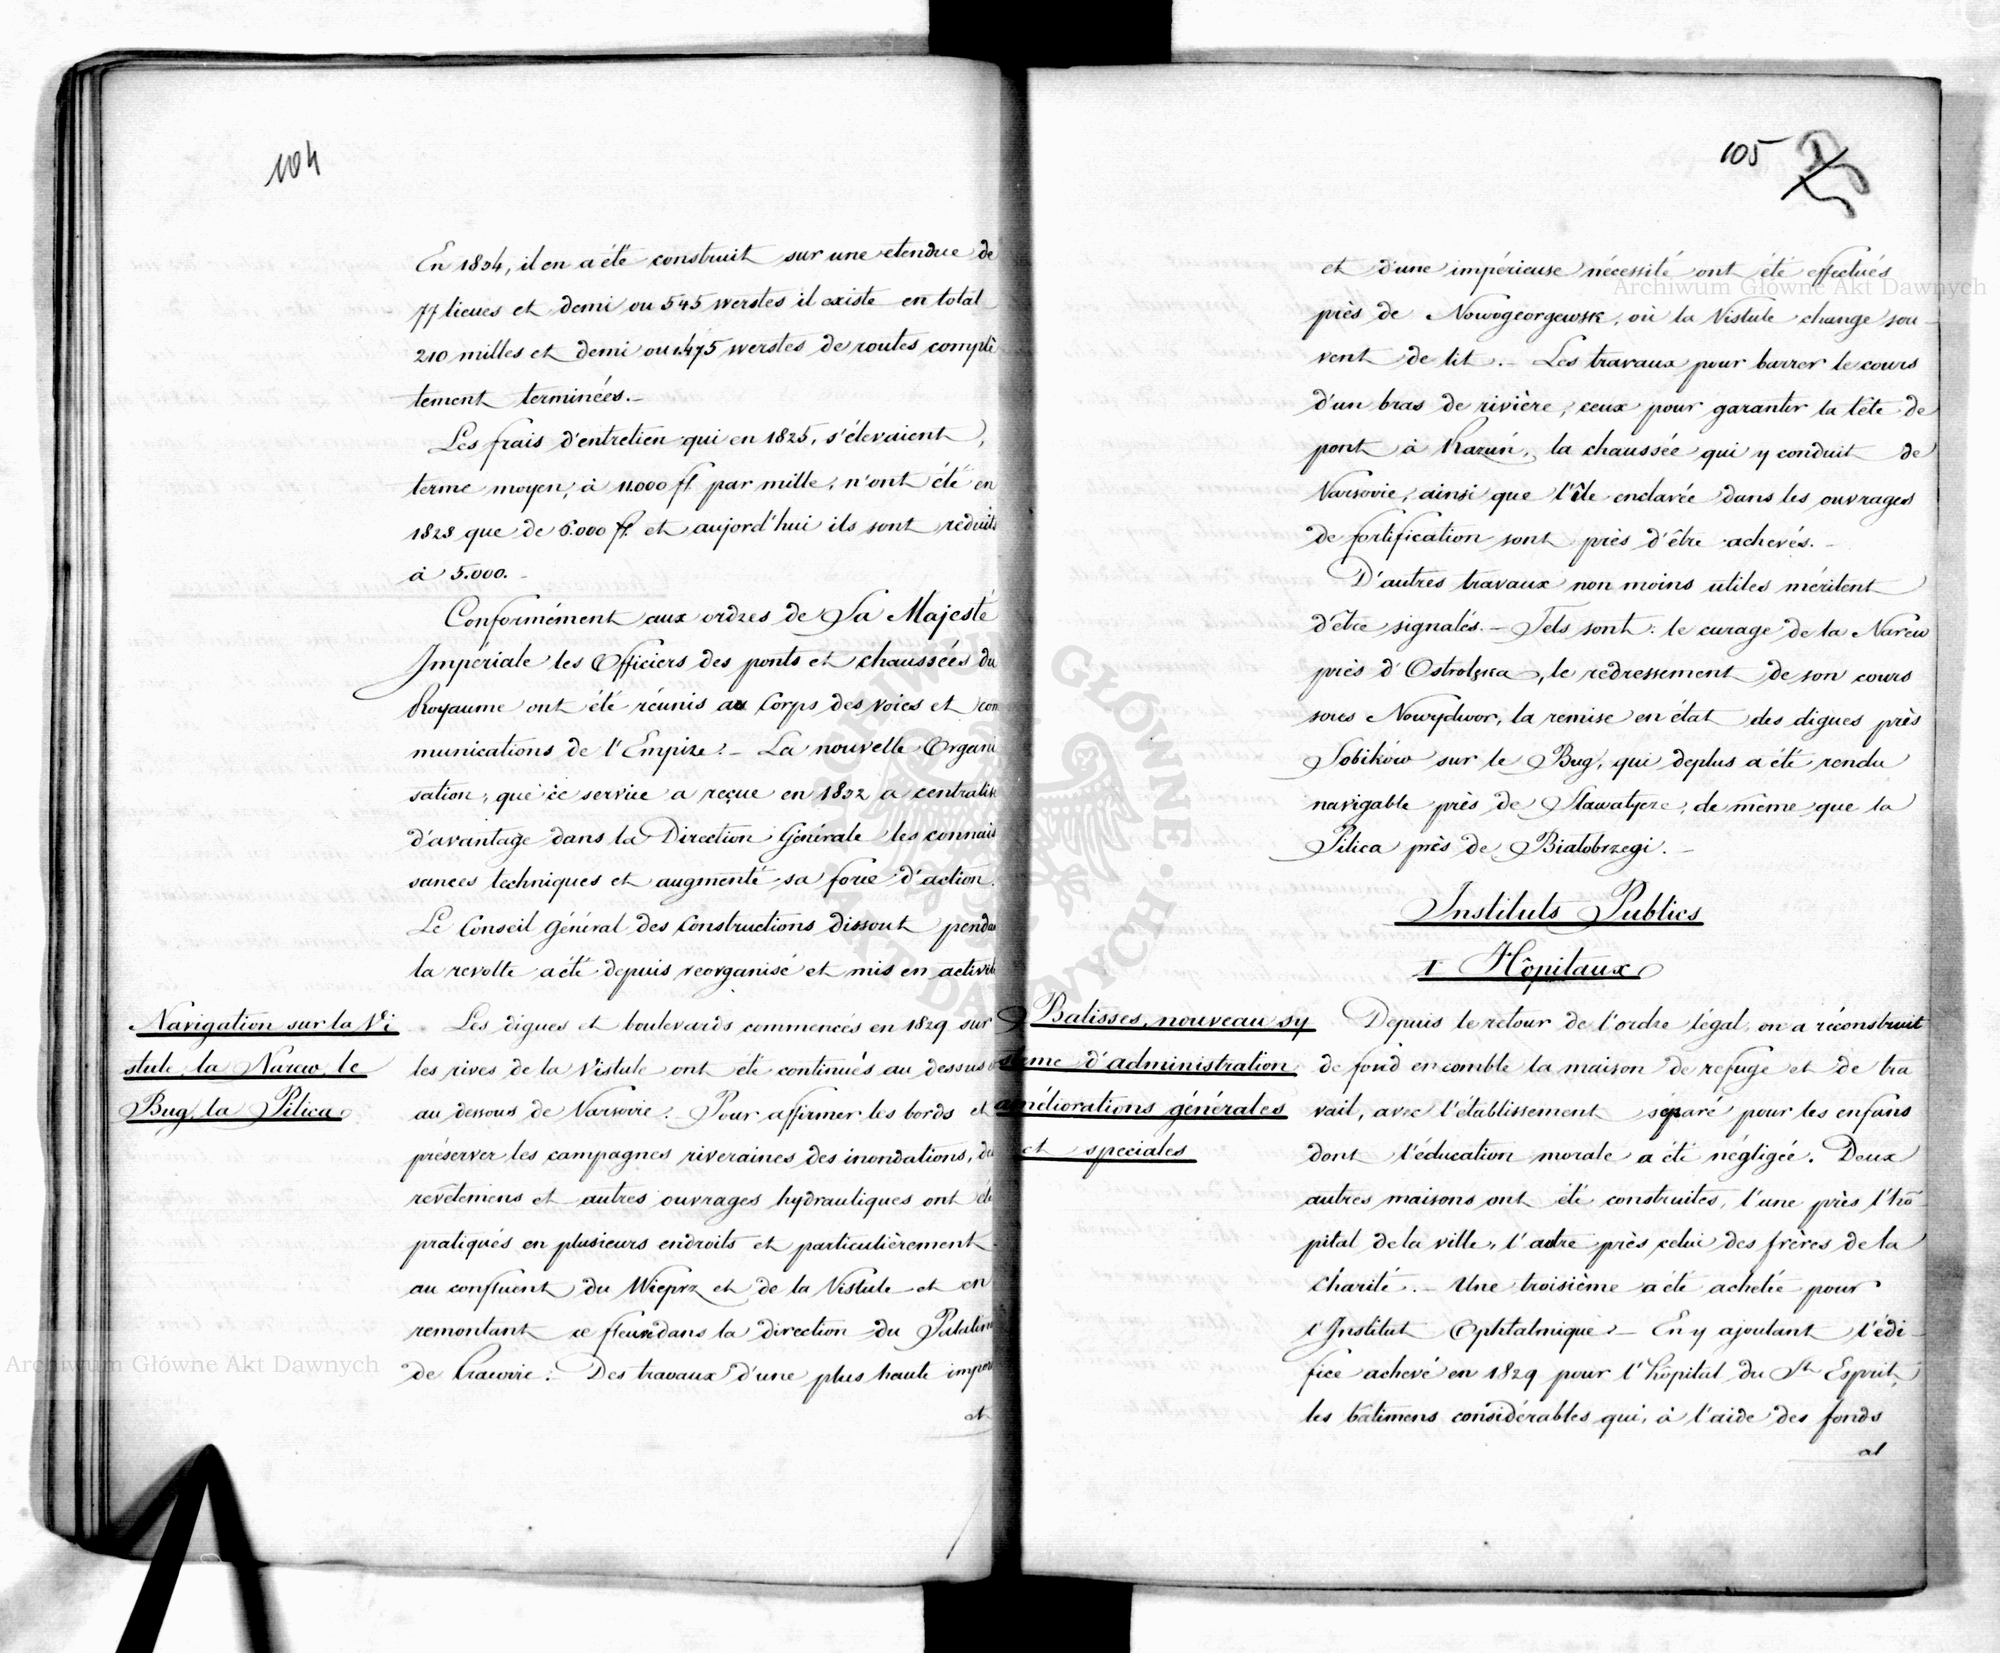 104
En 1834, il en a été construit sur une etendue de
77 lieues et demi ou 545 werstes il existe en total
210 milles et demi ou 1.475 werstes de routes complè
tement terminées.—
Les frais d'entretien qui en 1825, s'élevaient,
terme moyen, à 11.000 fl par mille, n'ont été en
1828 que de 6.000 fl. et aujord'hui ils sont réduits
à 5.000.—
Conformément aux ordres de Sa Majesté
Impériale les Officiers des ponts et chaussées du
Royaume ont été réunis au Corps des voies et com
munications de l'Empire.— La nouvelle Organi
sation, que ce service a reçue en 1832 a centralisé
d'avantage dans la Direction Générale les connais
sances techniques et augmenté sa force d'action.
Le Conseil Général des Constructions dissout pendant
la revolte a été depuis reorganisé et mis en activité
Navigation sur la Vi
stule, la Narew, le
Bug, la Pilica
Les digues et boulevards commencés en 1829 sur
les rives de la Vistule ont été continués au dessus et
au dessous de Varsovie. Pour affirmer les bords et
préserver les campagnes riveraines des inondations, des
revêtemens et autres ouvrages hydrauliques ont été
pratiqués en plusieurs endroits et particulièrement
au confluent du Wieprz et de la Vistule et en
remontant ce fleuve dans la direction du Palatinat
de Cracovie. Des travaux d'une plus haute import
et
105
et d'une impérieuse nécessité ont été effectués
près de Nowogeorgewsk, où la Vistule change sou-
vent de lit.— Les travaux pour barrer le cours
d'un bras de rivière, ceux pour garantir la tête de
pont à Kazuń, la chaussée qui y conduit de
Varsovie, ainsi que l'île enclavée dans les ouvrages
de fortification sont près d'être achevés.—
D'autres travaux non moins utiles méritent
d'être signalés.— Tels sont: le curage de la Narew
près d'Ostrołęka, le redressement de son cours
sous Nowydwor, la remise en état des digues près
Sobików sur le Bug, qui deplus a été rendu
navigable près de Sławatycze, de même que la
Pilica près de Białobrzegi.—
Instituts Publics
I Hôpitaux
Batisses, nouveau sy
steme d'administration
améliorations générales
et speciales
Depuis le retour de l'ordre légal, on a réconstruit
de fond en comble la maison de refuge et de tra
vail, avec l'établissement séparé pour les enfans
dont l'éducation morale a été négligée. Deux
autres maisons ont été construites, l'une près l'hô-
pital de la ville, l'autre près celui des frères de la
charité.— Une troisième a été achetée pour
l'Institut Ophtalmique.— En y ajoutant l'édi-
fice achevé en 1829 pour l'hôpital du St Esprit,
les bâtimens considérables qui, à l'aide des fonds
al
Archiwum Główne Akt Dawnych
Archiwum Główne Akt Dawnych
ARCHIWUM GŁÓWNE AKT DAWNYCH